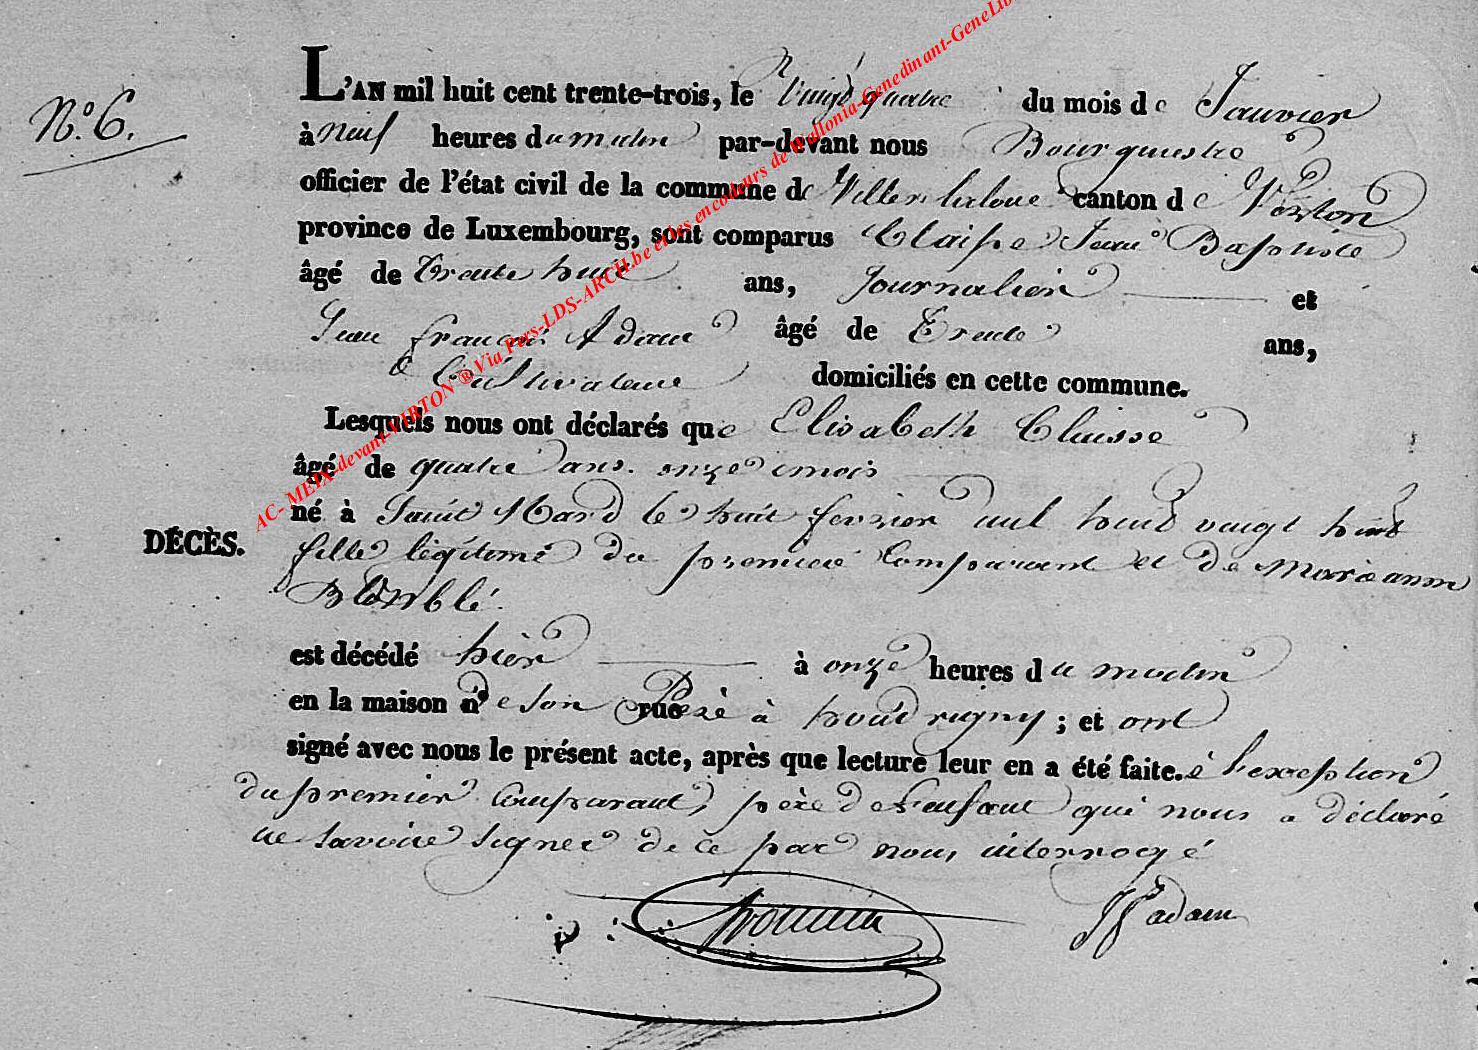 N.o 6.
L'AN mil huit cent trente-trois, le Vingt quatre du mois de Janvier
à neuf heures du matin par-devant nous Bourgmestre
officier de l'état civil de la commune de Villers la loue canton de Virton
province de Luxembourg, sont comparus Claisse Jean Baptiste
âgé de Trente huit ans, Journalier et
Jean françois Adam âgé de Trente ans,
Cultivateur domiciliés en cette commune.
Lesquels nous ont déclarés que Elisabeth Claisse
âgé de quatre ans onze mois
né à Saint Mard le huit fevrier mil huit vingt huit
DÉCÈS.
fille légitime du premier Comparant et de Marie anne
est décédé hier à onze heures du matin
en la maison n° de son rue Père à houdrigny ; et ont
signé avec nous le présent acte, après que lecture leur en a été faite. à l'exception
du premier Comparant, père de l'enfant qui nous a déclaré
ne savoir signer de ce par nous interrogé
JF adam
AC- METX-devant-VIRTON ® Via Pers-LDS-ARCH.be et les encodeurs de Wallonia-Genedinant-GeneLib